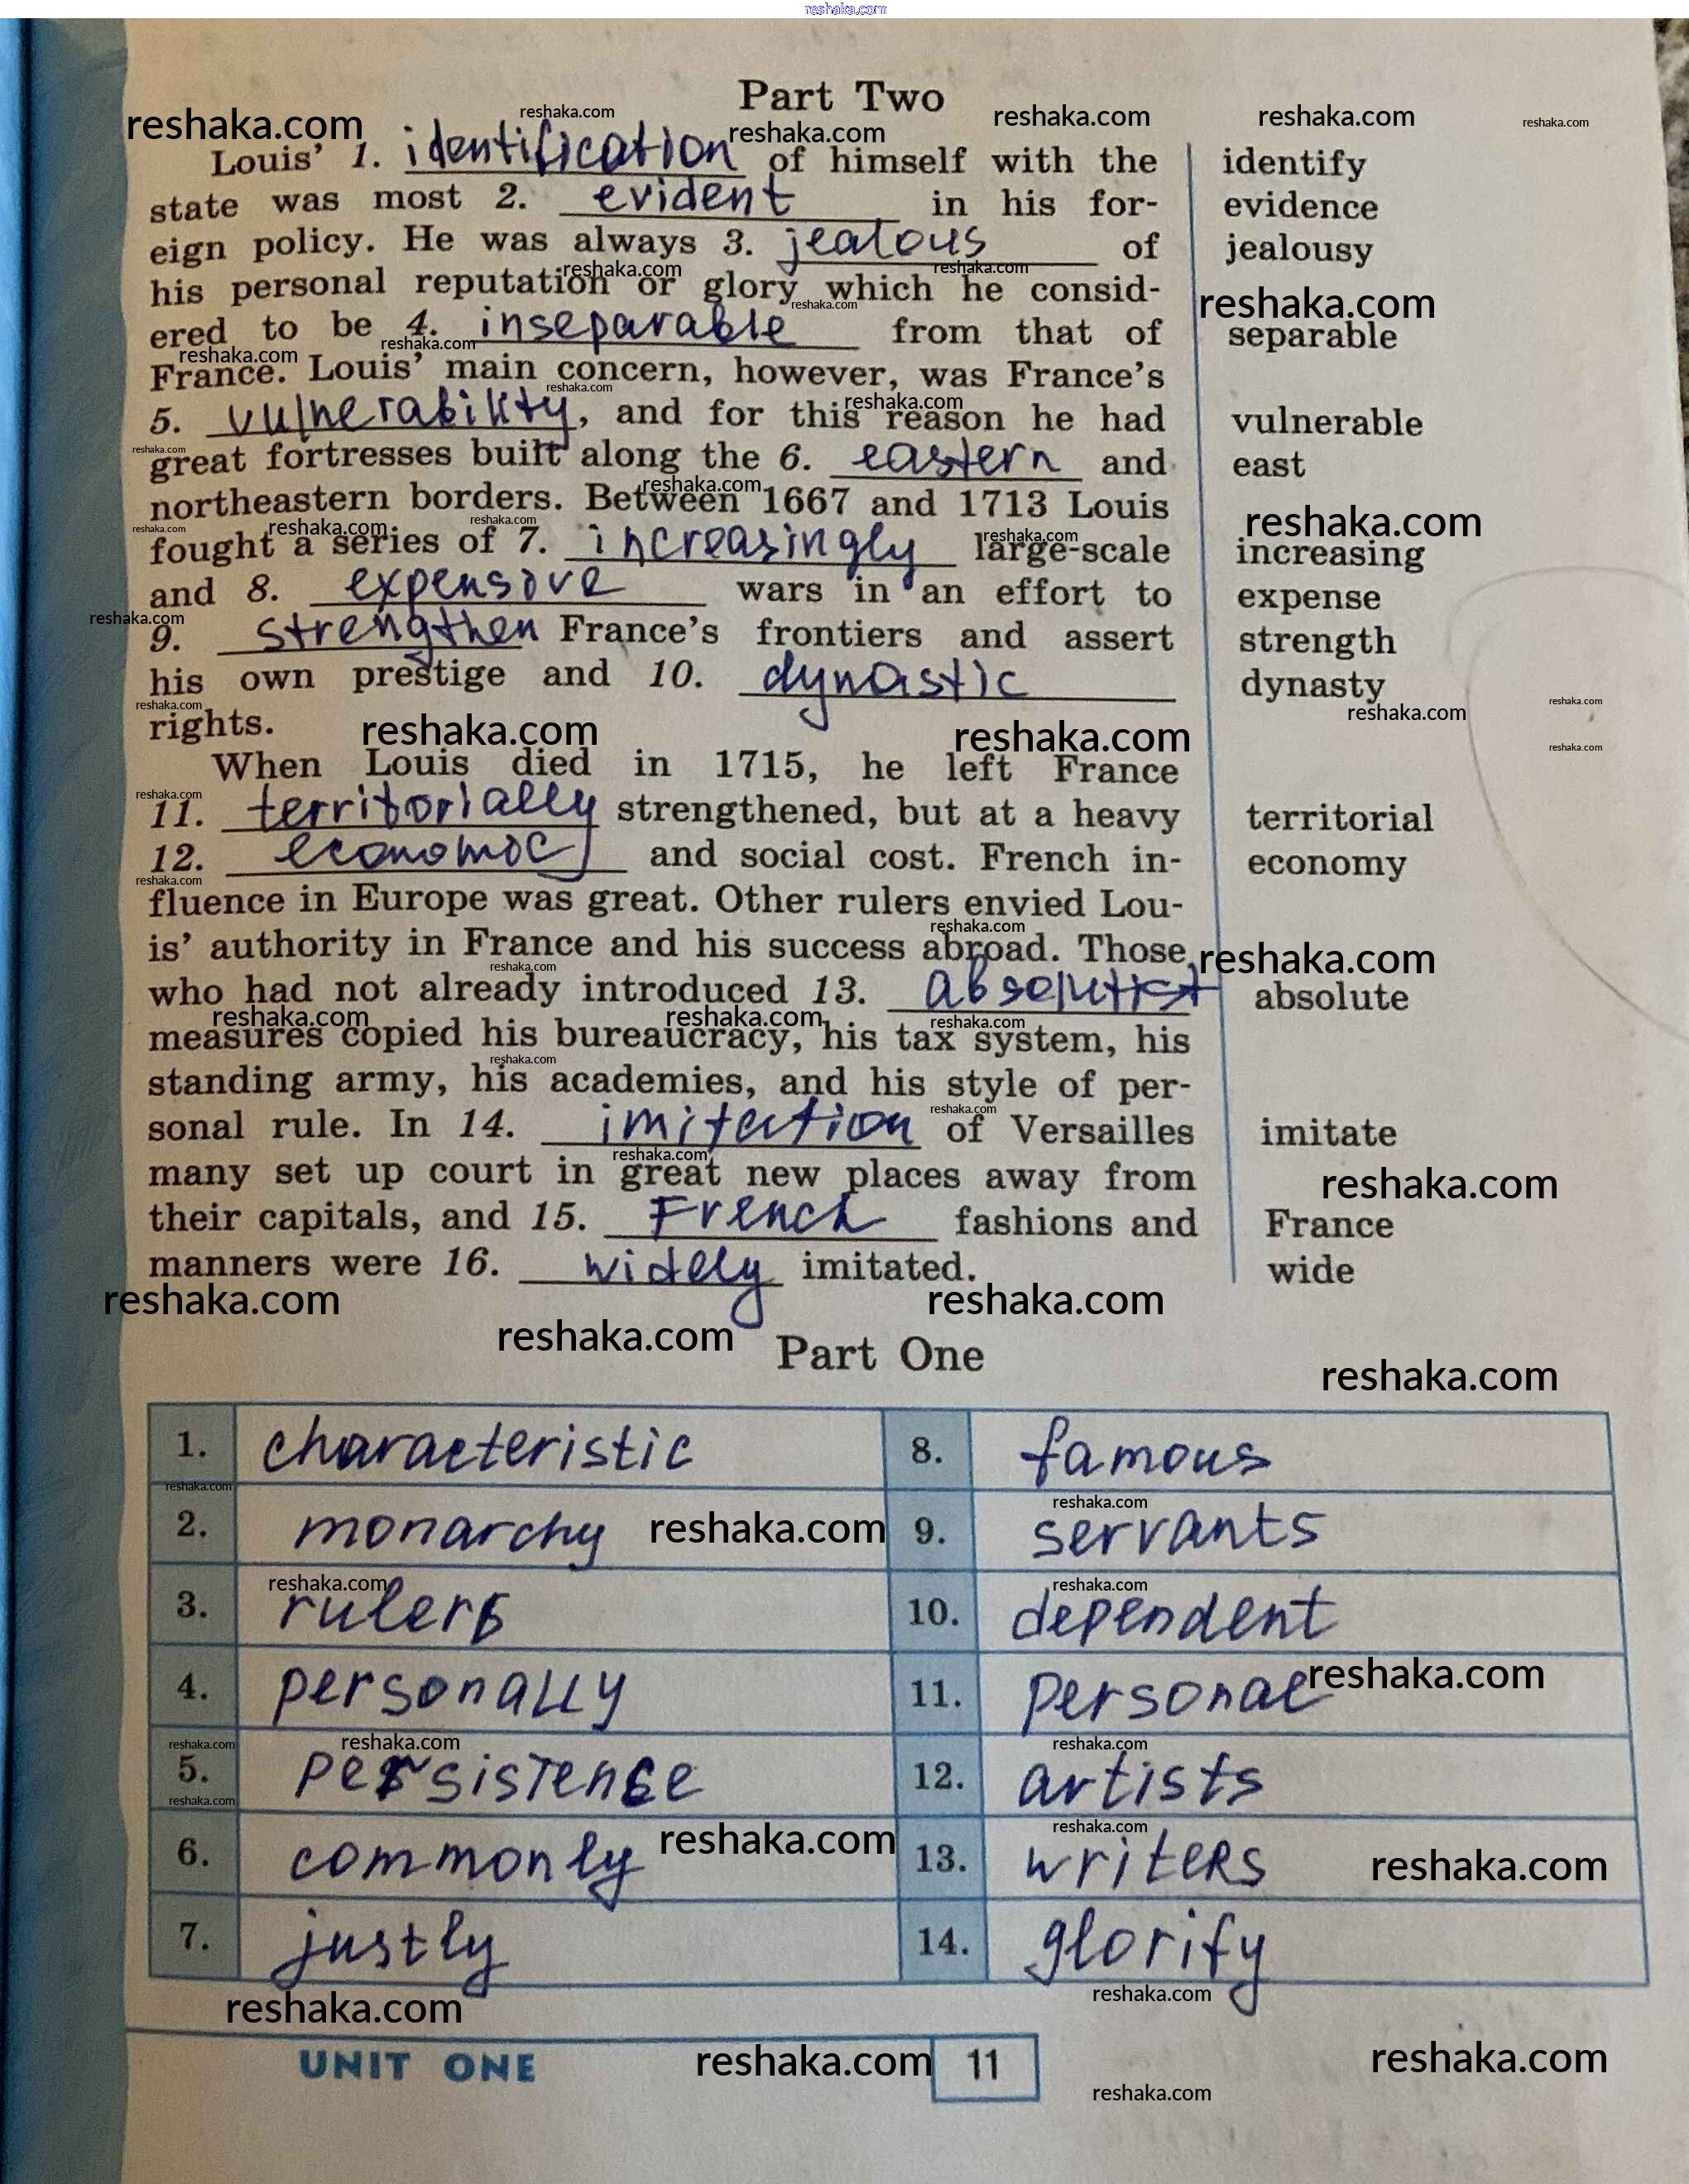 reshaka.com
Part Two
Louis' 1. identification of himself with the
state was most 2. evident in his for-
eign policy. He was always 3. jealous of
his personal reputation or glory which he consid-
ered to be 4. inseparable from that of
France. Louis' main concern, however, was France's
5. vulnerability, and for this reason he had
great fortresses built along the 6. eastern and
northeastern borders. Between 1667 and 1713 Louis
fought a series of 7. increasingly large-scale
and 8. expensive wars in an effort to
9. strengthen France's frontiers and assert
his own prestige and 10. dynastic
rights.
When Louis died in 1715, he left France
11. territorially strengthened, but at a heavy
12. economic and social cost. French in-
fluence in Europe was great. Other rulers envied Lou-
is' authority in France and his success abroad. Those
who had not already introduced 13. absolutist
measures copied his bureaucracy, his tax system, his
standing army, his academies, and his style of per-
sonal rule. In 14. imitation of Versailles
many set up court in great new places away from
their capitals, and 15. French fashions and
manners were 16. widely imitated.
identify
evidence
jealousy
separable
vulnerable
east
increasing
expense
strength
dynasty
territorial
economy
absolute
imitate
France
wide
Part One
1. characteristic
2. monarchy
3. rulers
4. personally
5. persistence
6. commonly
7. justly
8. famous
9. servants
10. dependent
11. personal
12. artists
13. writers
14. glorify
UNIT ONE
11